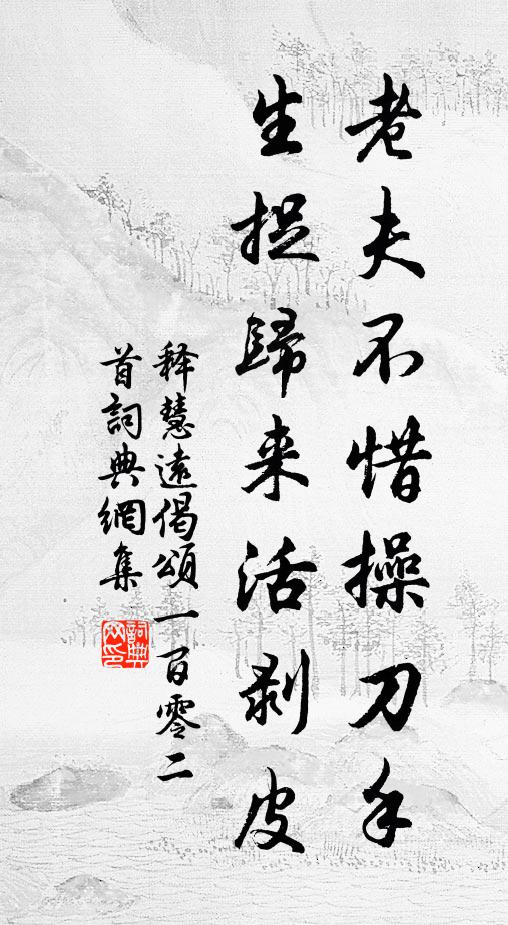 老夫不惜操刀手
生捉歸来活剥皮
释慧遠偈頌一百零二
首詞典網集
詞典
网印